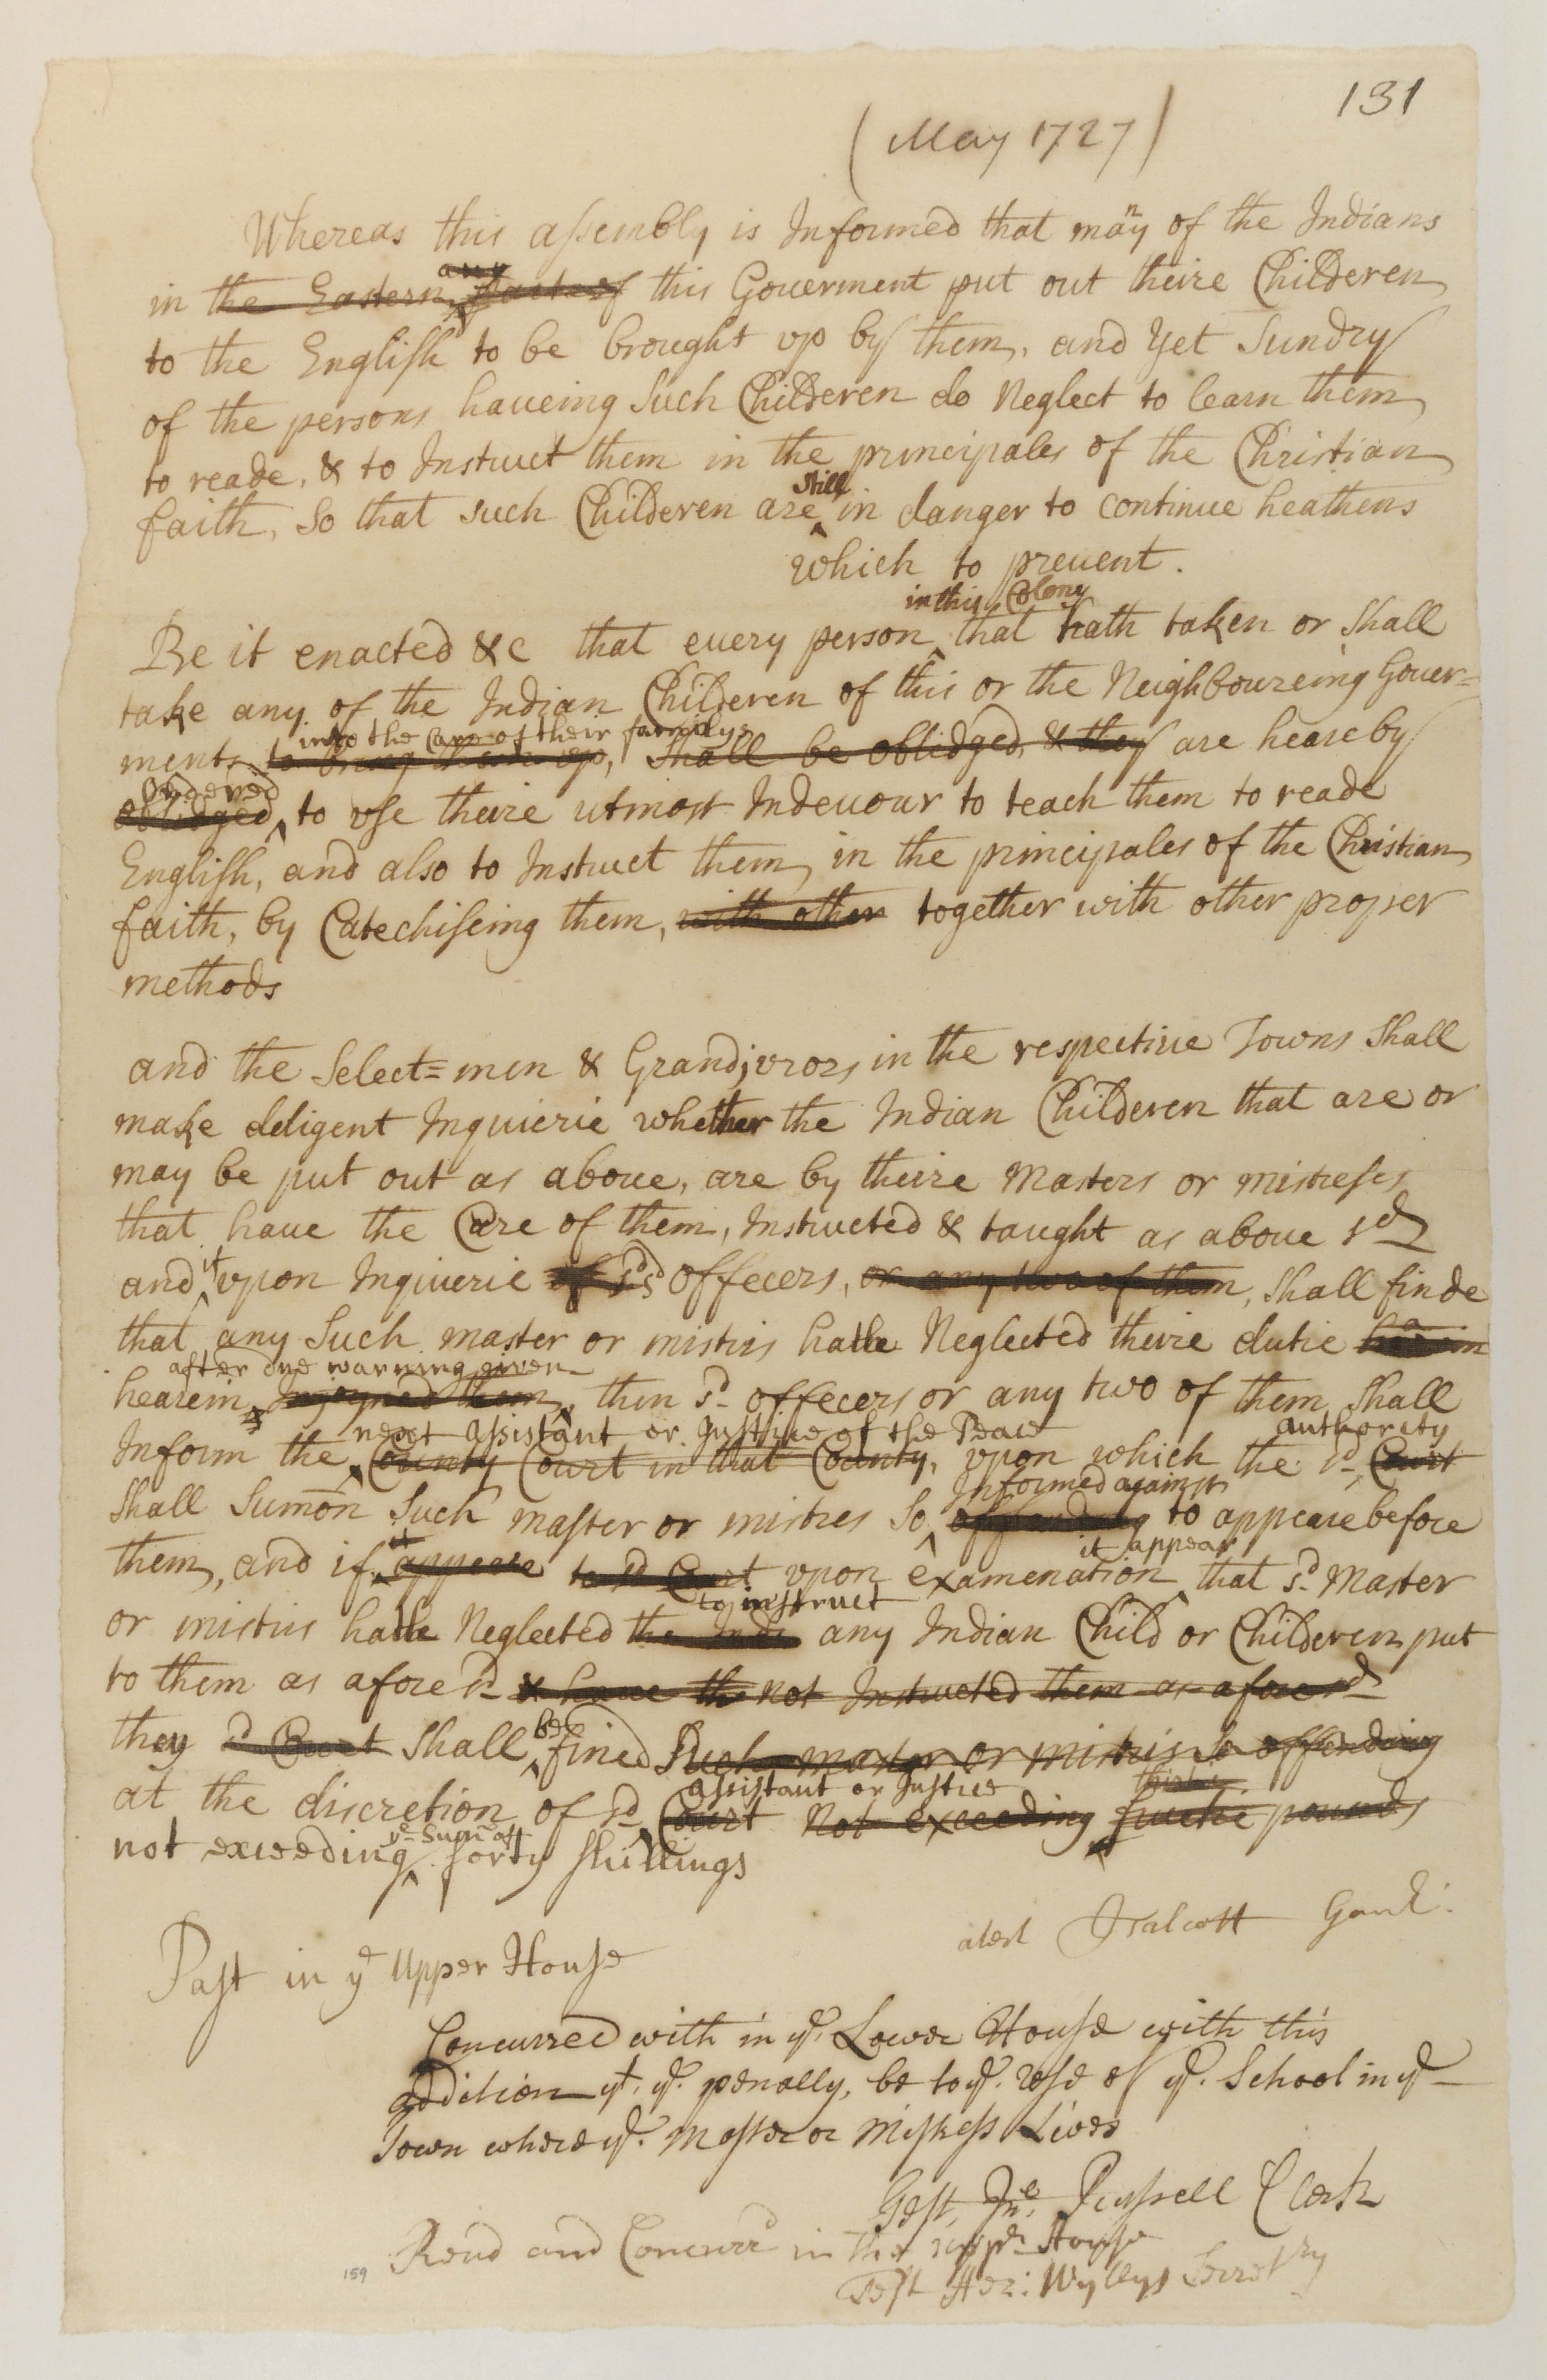 131
(May 1727)
Whereas this assembly is Informed that many of the Indians
any
in the Eastern partes of this Gouerment put out theire Childeren
to the English to be brought vp by them, and yet Sundry
of the persons haueing Such Childeren do Neglect to learn them
to reade, & to Instruct them in the principales of the Christian
still
faith, So that such Childeren are in danger to continue heathens
which to preuent.
in this Colony
Be it enacted &c that euery person that hath taken or Shall
take any of the Indian Childeren of this or the Neighboureing Gouer=
into the Care of their familys
ments to bring them up, Shall be oblidged, & they are heareby
Ordered
oblidged to vse theire utmost Indeuour to teach them to reade
English, and also to Instruct them in the principales of the Christian
faith, by Catechiseing them, with other together with other proper
methods
and the Select=men & Grandjurors in the respectiue Towns Shall
make deligent Inquierie whether the Indian Childeren that are or
may be put out as aboue, are by theire Masters or mistreses
that haue the Care of them, Instructed & taught as aboue sd
and if vpon Inquierie of sd offecers, or any two of them, Shall finde
that any Such master or mistris hath Neglected theire dutie
after one warning given
hearein Injoyned them, then sd offecers or any two of them Shall
next assistant or Justice of the Peace authority
Inform the County Court in that County, vpon which the sd Court
Informed against
Shall Sumon Such master or mistres So offending to appeare before
it it appear
them, and if appeare to sd Court vpon examenation that sd Master
to instruct
or mistris hath Neglected the Indi any Indian Child or Childeren put
to them as afore sd & haue the not Instructed them as afore sd
be
they sd Court Shall fined Such master or mistris So offending
assistant or Justice
at the discretion of sd Court Not exceeding pounds
ye Sum of
not exceeding forty shillings
atest JTalcott Gour:
Past in ye Upper House
Concurred with in ye. Lower House with this
addition yt. ye. penalty, be to ye. Use of ye. School in ye
Town where ye. Master or Mistress Lives
Test, Jno. Russell Clerk
Read and Concurrd in the upper House
Test Hez: Wyllys Secretry
159